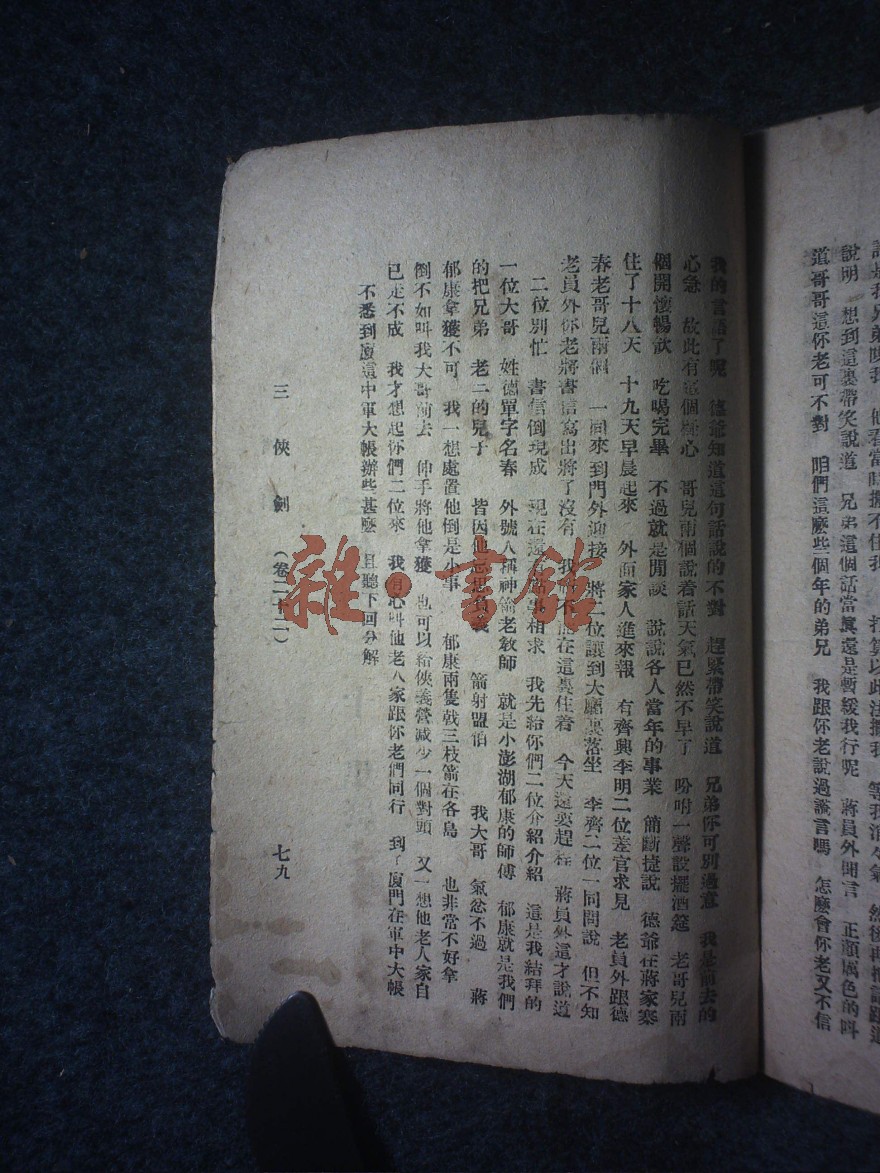 道哥哥這你老可不對 咱們這麽些個年的弟兄 我跟你老說過謊言嗎 怎麽會你老又不信
我的言語了呢 德爺知道這句話說的不對 趕緊帶笑說道 兄弟你可別過意 我是前去的
心急 故此有這個疑心 哥兒兩個說着話天氣已然不早了 吩咐一聲設擺酒筵 老哥兒兩
個開懷暢飲 吃喝完畢 不過就是閒談 說說各人當年的事業 簡斷捷說 德爺在蔣家寨
住了十八天 十九天早晨起來 外面家人進來報 有齊興李明二位差官求見 老員外跟德
春老哥兒兩個 一同來到門外迎接 將二位讓到大廳裏落坐 李齊二位一同問說 但不知
老員外你老將書信寫出將了沒有 我 不能在這裏住着 今天還要趕 蔣員外這才說道
二位別忙 書信倒現成 現在還有 事相求 我先給你們二位介紹介紹 這是我結拜的
一位大哥 姓德單字名春 外號人稱神箭老教師 就是小澎湖郁康的師傅 郁康就是我們
的把兄弟 老二的兒子 皆因他忘恩負義 箭射盟伯 我大哥 氣忿不過 將
郁康拿獲不可 我一想處置他倒是小事 郁康兩隻戟三枝箭在各島 也非常不好拿
倒不如叫我大哥前去 伸手將他拿獲 也可以給俠義營减少一個對頭 又一想他老人家自
已走不成 我才想起你們二位來 我有心叫他老人家跟你老們同行 到了廈門在軍中大帳
不悉到廈這中軍大帳辦些甚麽 且聽下回分解
三俠劍 （卷二十二） 七九
說明 想到這裏帶笑說道 兄弟這個話當眞還是暫緩我行呢 蔣員外聞言 正顏厲色的叫
雜·書館